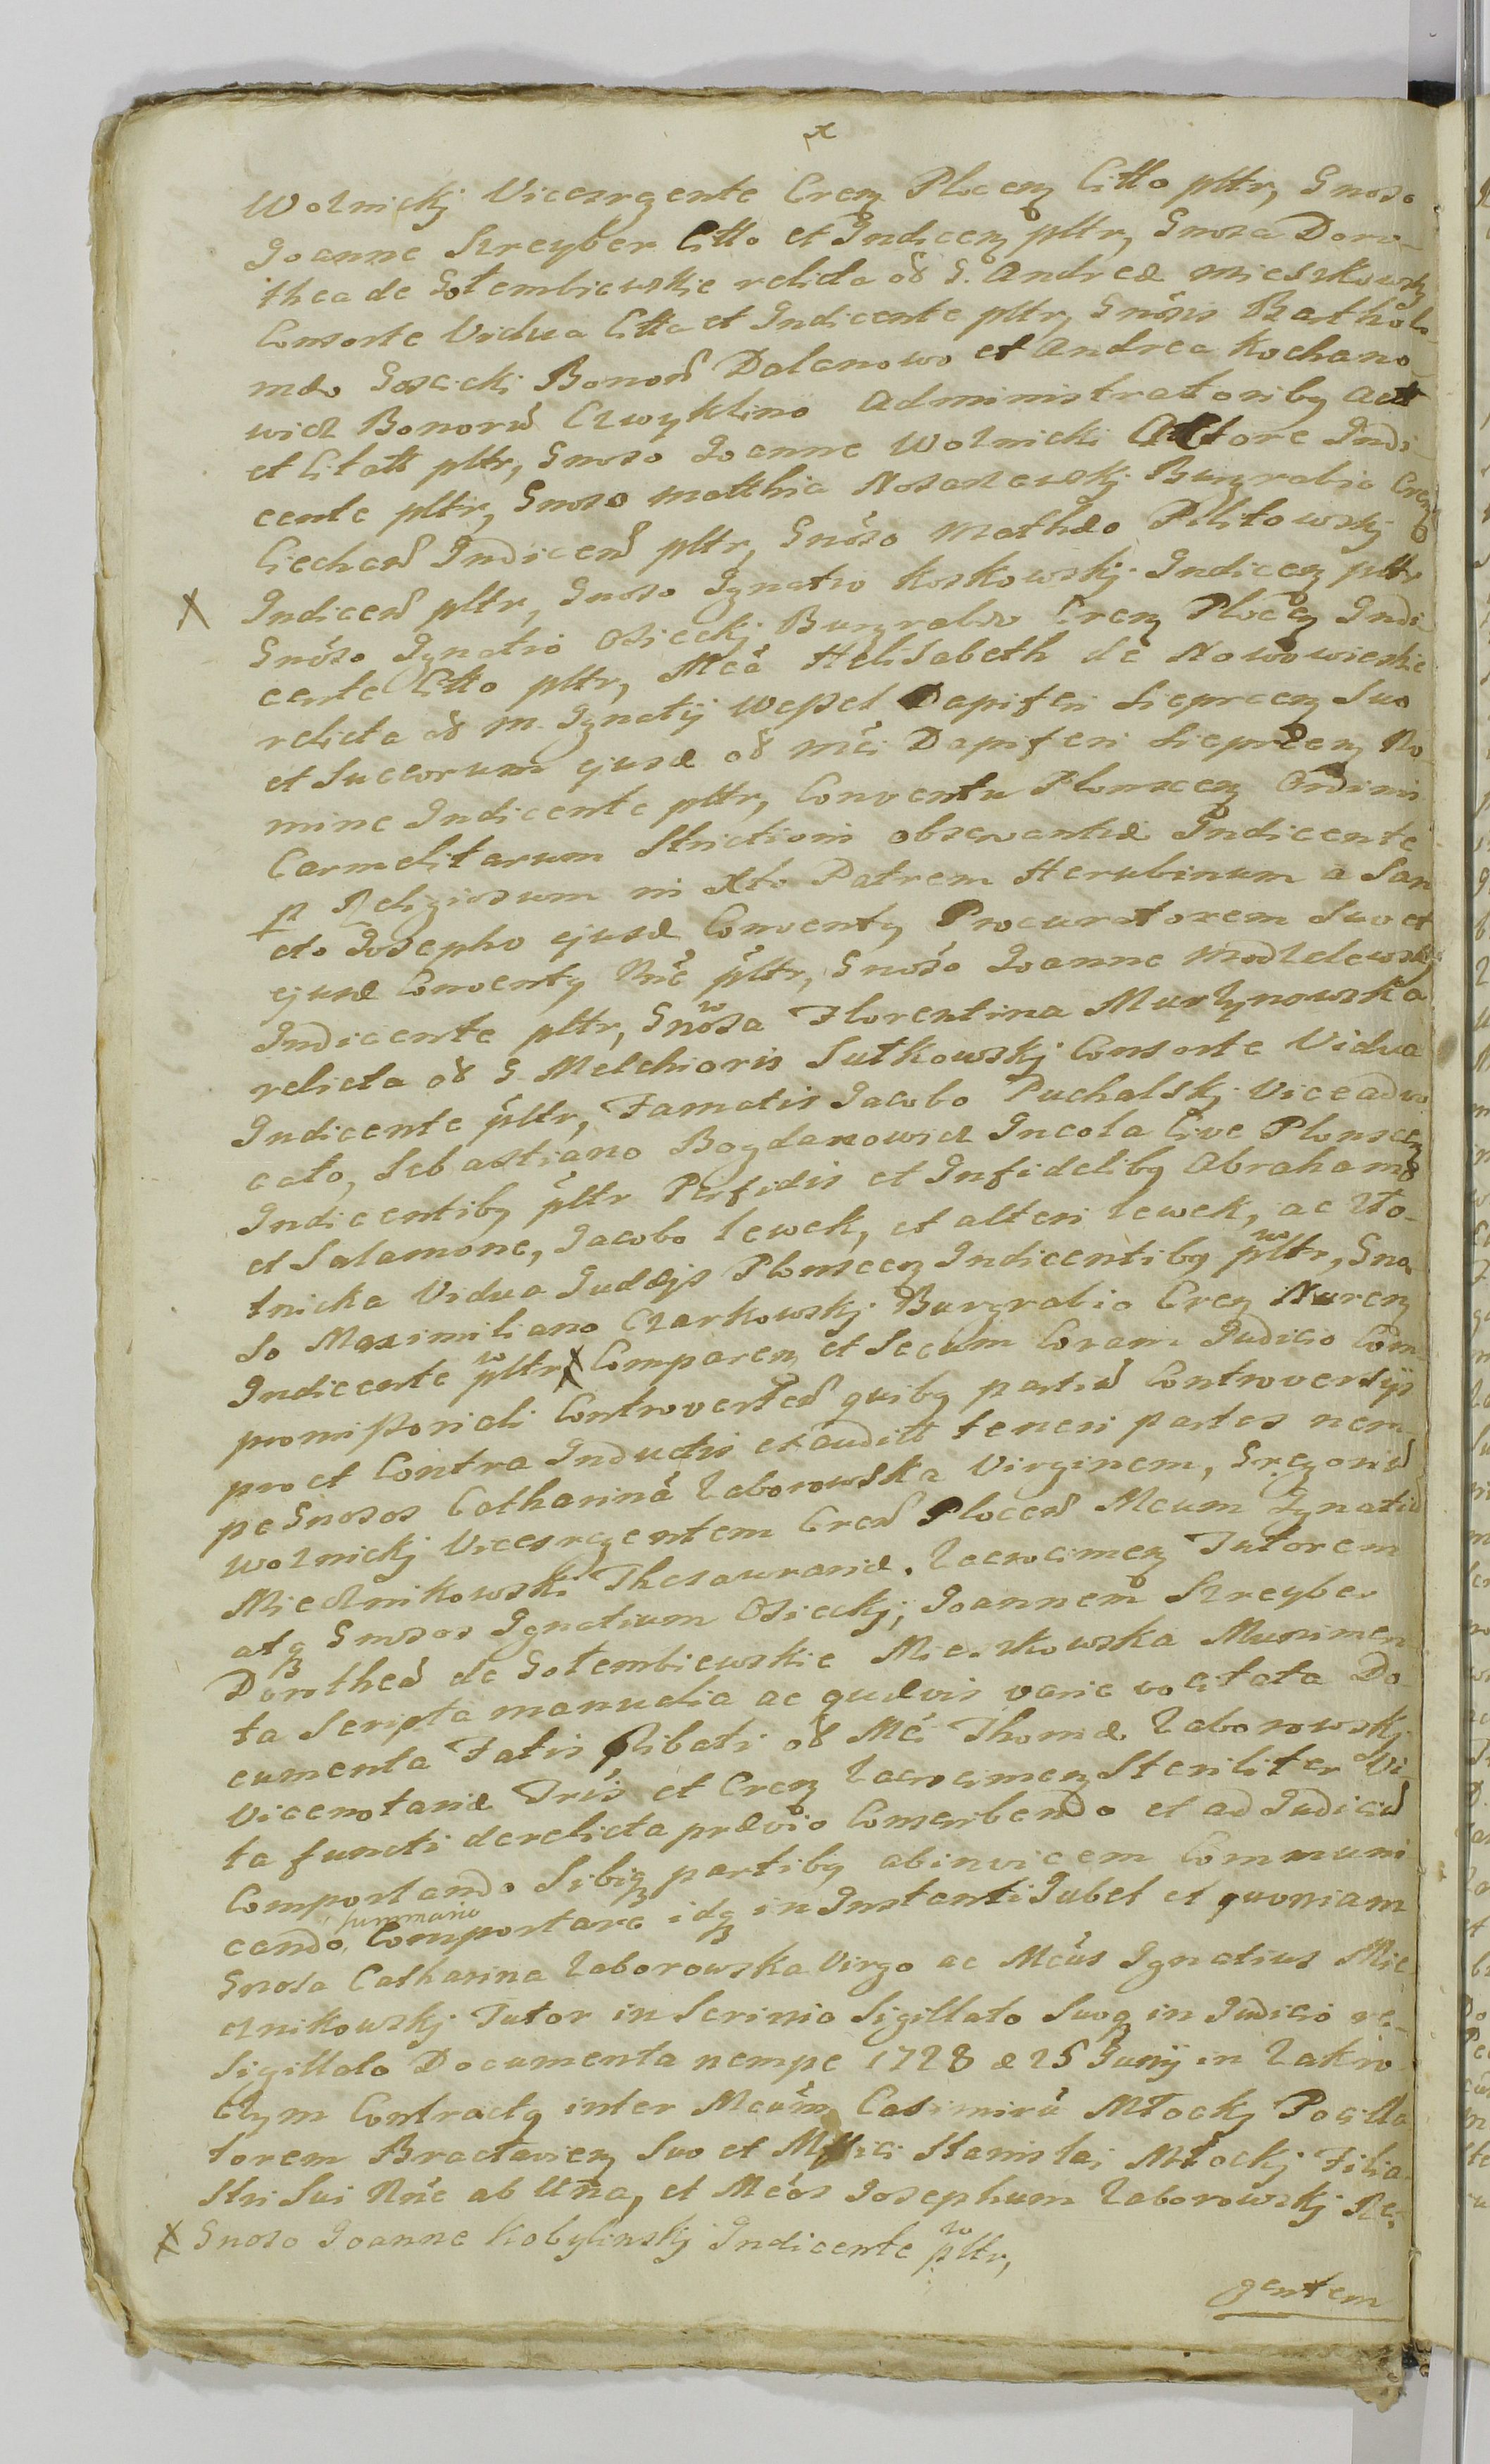 x
Wolnickj Vicesrgente Crenz Plocenz Citto pltr, Gnoso
Joanne Szreyber Citto et Indicenz pltr, Gnosa Doro-
thea de Gołembiewskie relicta oδ G. Andreæ Mieszkowskj
Consorte Vidua Citta et Indicente pltr, Gnosis Bartholo-
mæo Gosicki Bonorū Dalanowo et Andrea Kochano-
wicz Bonorū Czwyklino Administratoribꝫ Actt
et Citatt pltr, Gnoso Joanne Wolnicki Actore Indi-
cente pltr, Gnoso Matthia Nosarzewskj Burgrabio Crenz
Ciechanꝭ Indicenꝭ pltr, Gnoso Mathæo Pilitowskj
X Indicenꝭ pltr, Gnoso Ignatio Koskowskj Indicenz pltr
Gnoso Ignatio Osieckj Burgrabio Crenz Plocenz Indi-
cente Citto pltr, Mca Helisabeth de Nowowieskie
relicta oδ M. Ignatij Wessel Dapiferi Sieprcenz Suo
et Succorum ejusd oδ Mci Dapiferi Sieprcenz No-
mine Indicente pltr, Conventu Plonscenz Ordinis
Carmelitarum Strictioris observantiæ Indicente
p Religiosum in Xto Patrem Herubinum a San
cto Josepho ejusd Conventꝫ Procuratorem Suo et
ejusd Conventꝫ Nne pltr, Gnoso Joanne Modzelewskj
Indicente pltr, Gnosa Florentina Murzynowska
relicta oδ G. Melchioris Sutkowskj Consorte Vidua
Indicente pltr, Famatis Jacobo Puchalskj Viceadvo
cato, Sebastiano Bogdanowicz Incola Cive Plonscenz
Indicentibꝫ pltr Perfidis et Infidelibꝫ Abrahamo
et Salamone, Jacobo Lewek, et alteri Lewek, ac Zło-
tnicka Vidua Judæjs Plonscenz Indicentibꝫ pltr, Gno-
so Maximiliano Czarkowskj Burgrabio Crenz Nurenz
Indicente pltr, X Comparenz et Secum Coram Judicio Com-
promissoriali Controvertenꝭ quibꝫ partiū Controversijs
pro et Contra Inductis et auditt teneri partes nem-
pe Gnosos Catharinā Zaborowska Virginem, Gregoriū
Wolnickj Vicesrgentem Crenꝭ Plocenꝭ Mcum Ignatiū
Miecznikowski Thesaurariæ. Zacrocimenz Tutorem
atqꝫ Gnosos Ignatium Osieckj, Joannem Szreyber
Dorotheā de Gołembiewskie Mieszkowska Munimen-
ta Scripta manualia ac quævis varie vocitata Do-
cumenta Fatis plibati oδ Mci Thomæ Zaborowskj
Vicenotariæ Tris et Crenz Zacrocimenz Steriliter Vi-
ta functi derelicta prævio Conscribendo et ad Judiciū
Comportando Sibiqꝫ partibꝫ abinvicem Communi
cando, summario Comportare idqꝫ in Instanti Jubet et quoniam
Gnosa Catharina Zaborowska Virgo ac Mcus Ignatius Mie
cznikowskj Tutor in Scrinio Sigillato Suoqꝫ in Judicio re-
Sigillato Documenta nempe 1728 æ 25 Junij in Zakro
czym Contractꝫ inter Mcum Casimirū Młockj Pocilla
torem Braclavienz Suo et Mfici Stanislai Młockj Filia-
stri Sui Nne ab una, et Mcos Josephum Zaborowskj Re-
X Gnoso Joanne Kobylinskj Indicente pltr,
gentem